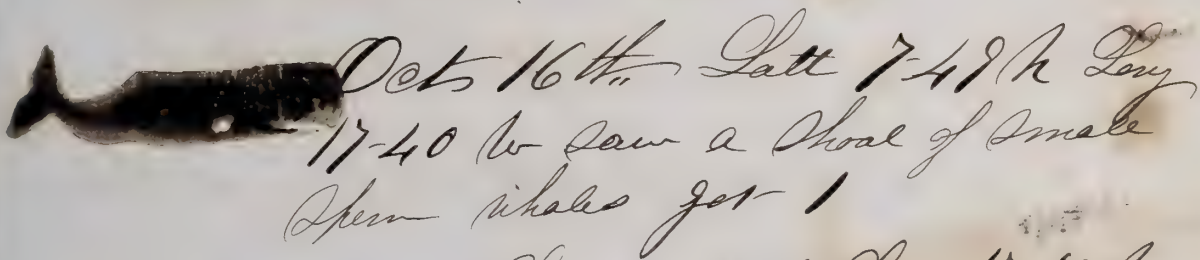 Oct 16th Latt 7-49 N Long
17-40 W saw a shoal of small
sperm whales got 1